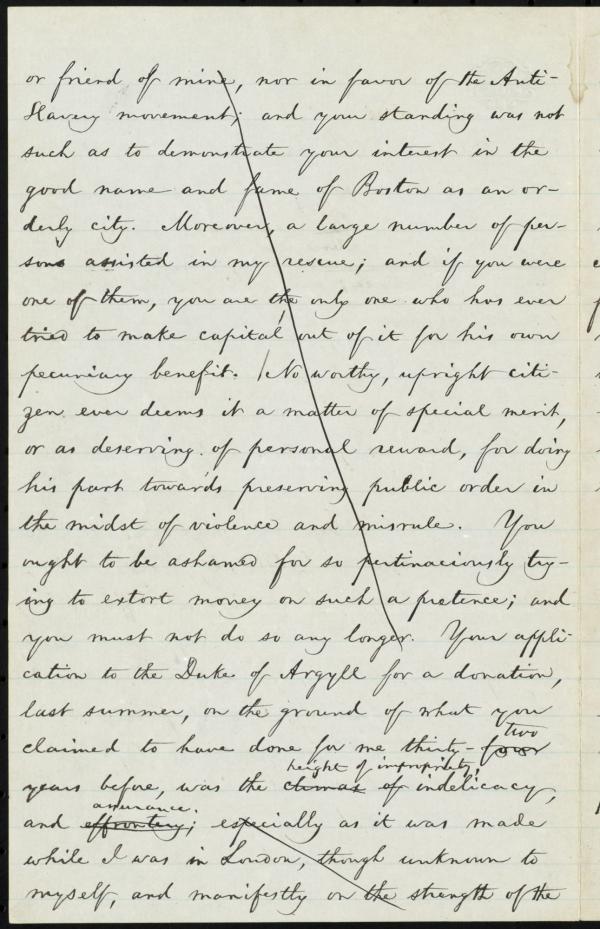 or friend of mine, nor in favor of the Anti-
Slavery movement; and your standing was not
such as to demonstrate your interest in the
good name and fame of Boston as an or-
derly city. Moreover, a large number of per-
sons assisted in my rescue; and if you were
one of them, you are the only one who has ever
tried to make capital out of it for his own
pecuniary benefit. No worthy, upright citi-
zen ever deems it a matter of special merit,
or as deserving of personal reward, for doing
his part towards preserving public order in
the midst of violence and misrule. You
ought to be ashamed for so pertinaciously try-
ing to extort money on such a pretence; and
you must not do so any longer. Your appli-
cation to the Duke of Argyll for a donation,
last summer, on the ground of what you
two
claimed to have done for me thirty-four
height of impropriety,
years before, was the climax of indelicacy,
assurance.
and effrontery; especially as it was made
while I was in London, though unknown to
myself, and manifestly on the strength of the